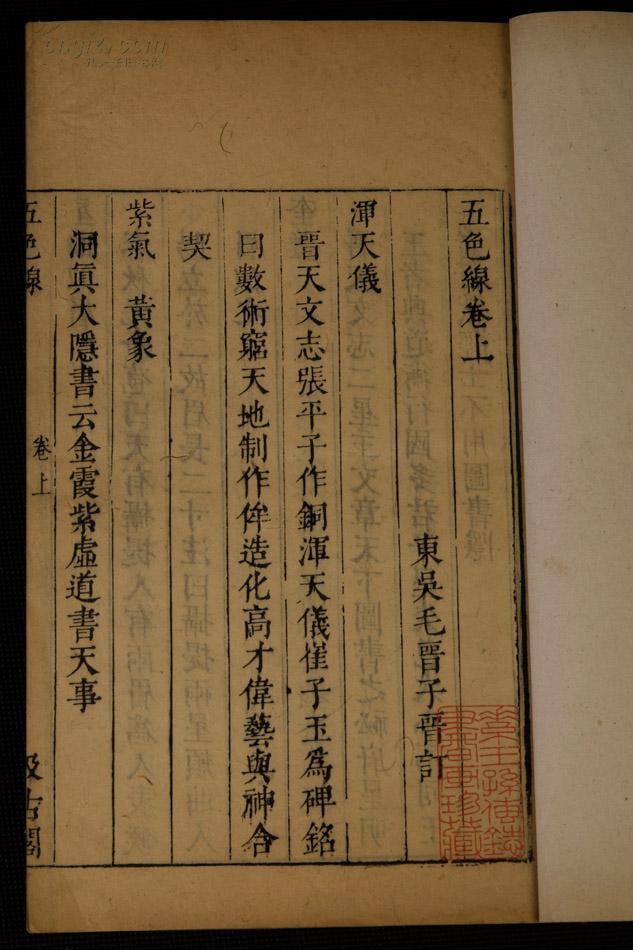 五色線卷上
東吳毛晉子晉訂
渾天儀
晉天文志張平子作銅渾天儀崔子玉為碑銘
曰數術窮天地制作侔造化高才偉藝與神合
契
紫氣　黃象
洞真大隱書云金霞紫虛道書天事
五色線　卷上　汲古閣